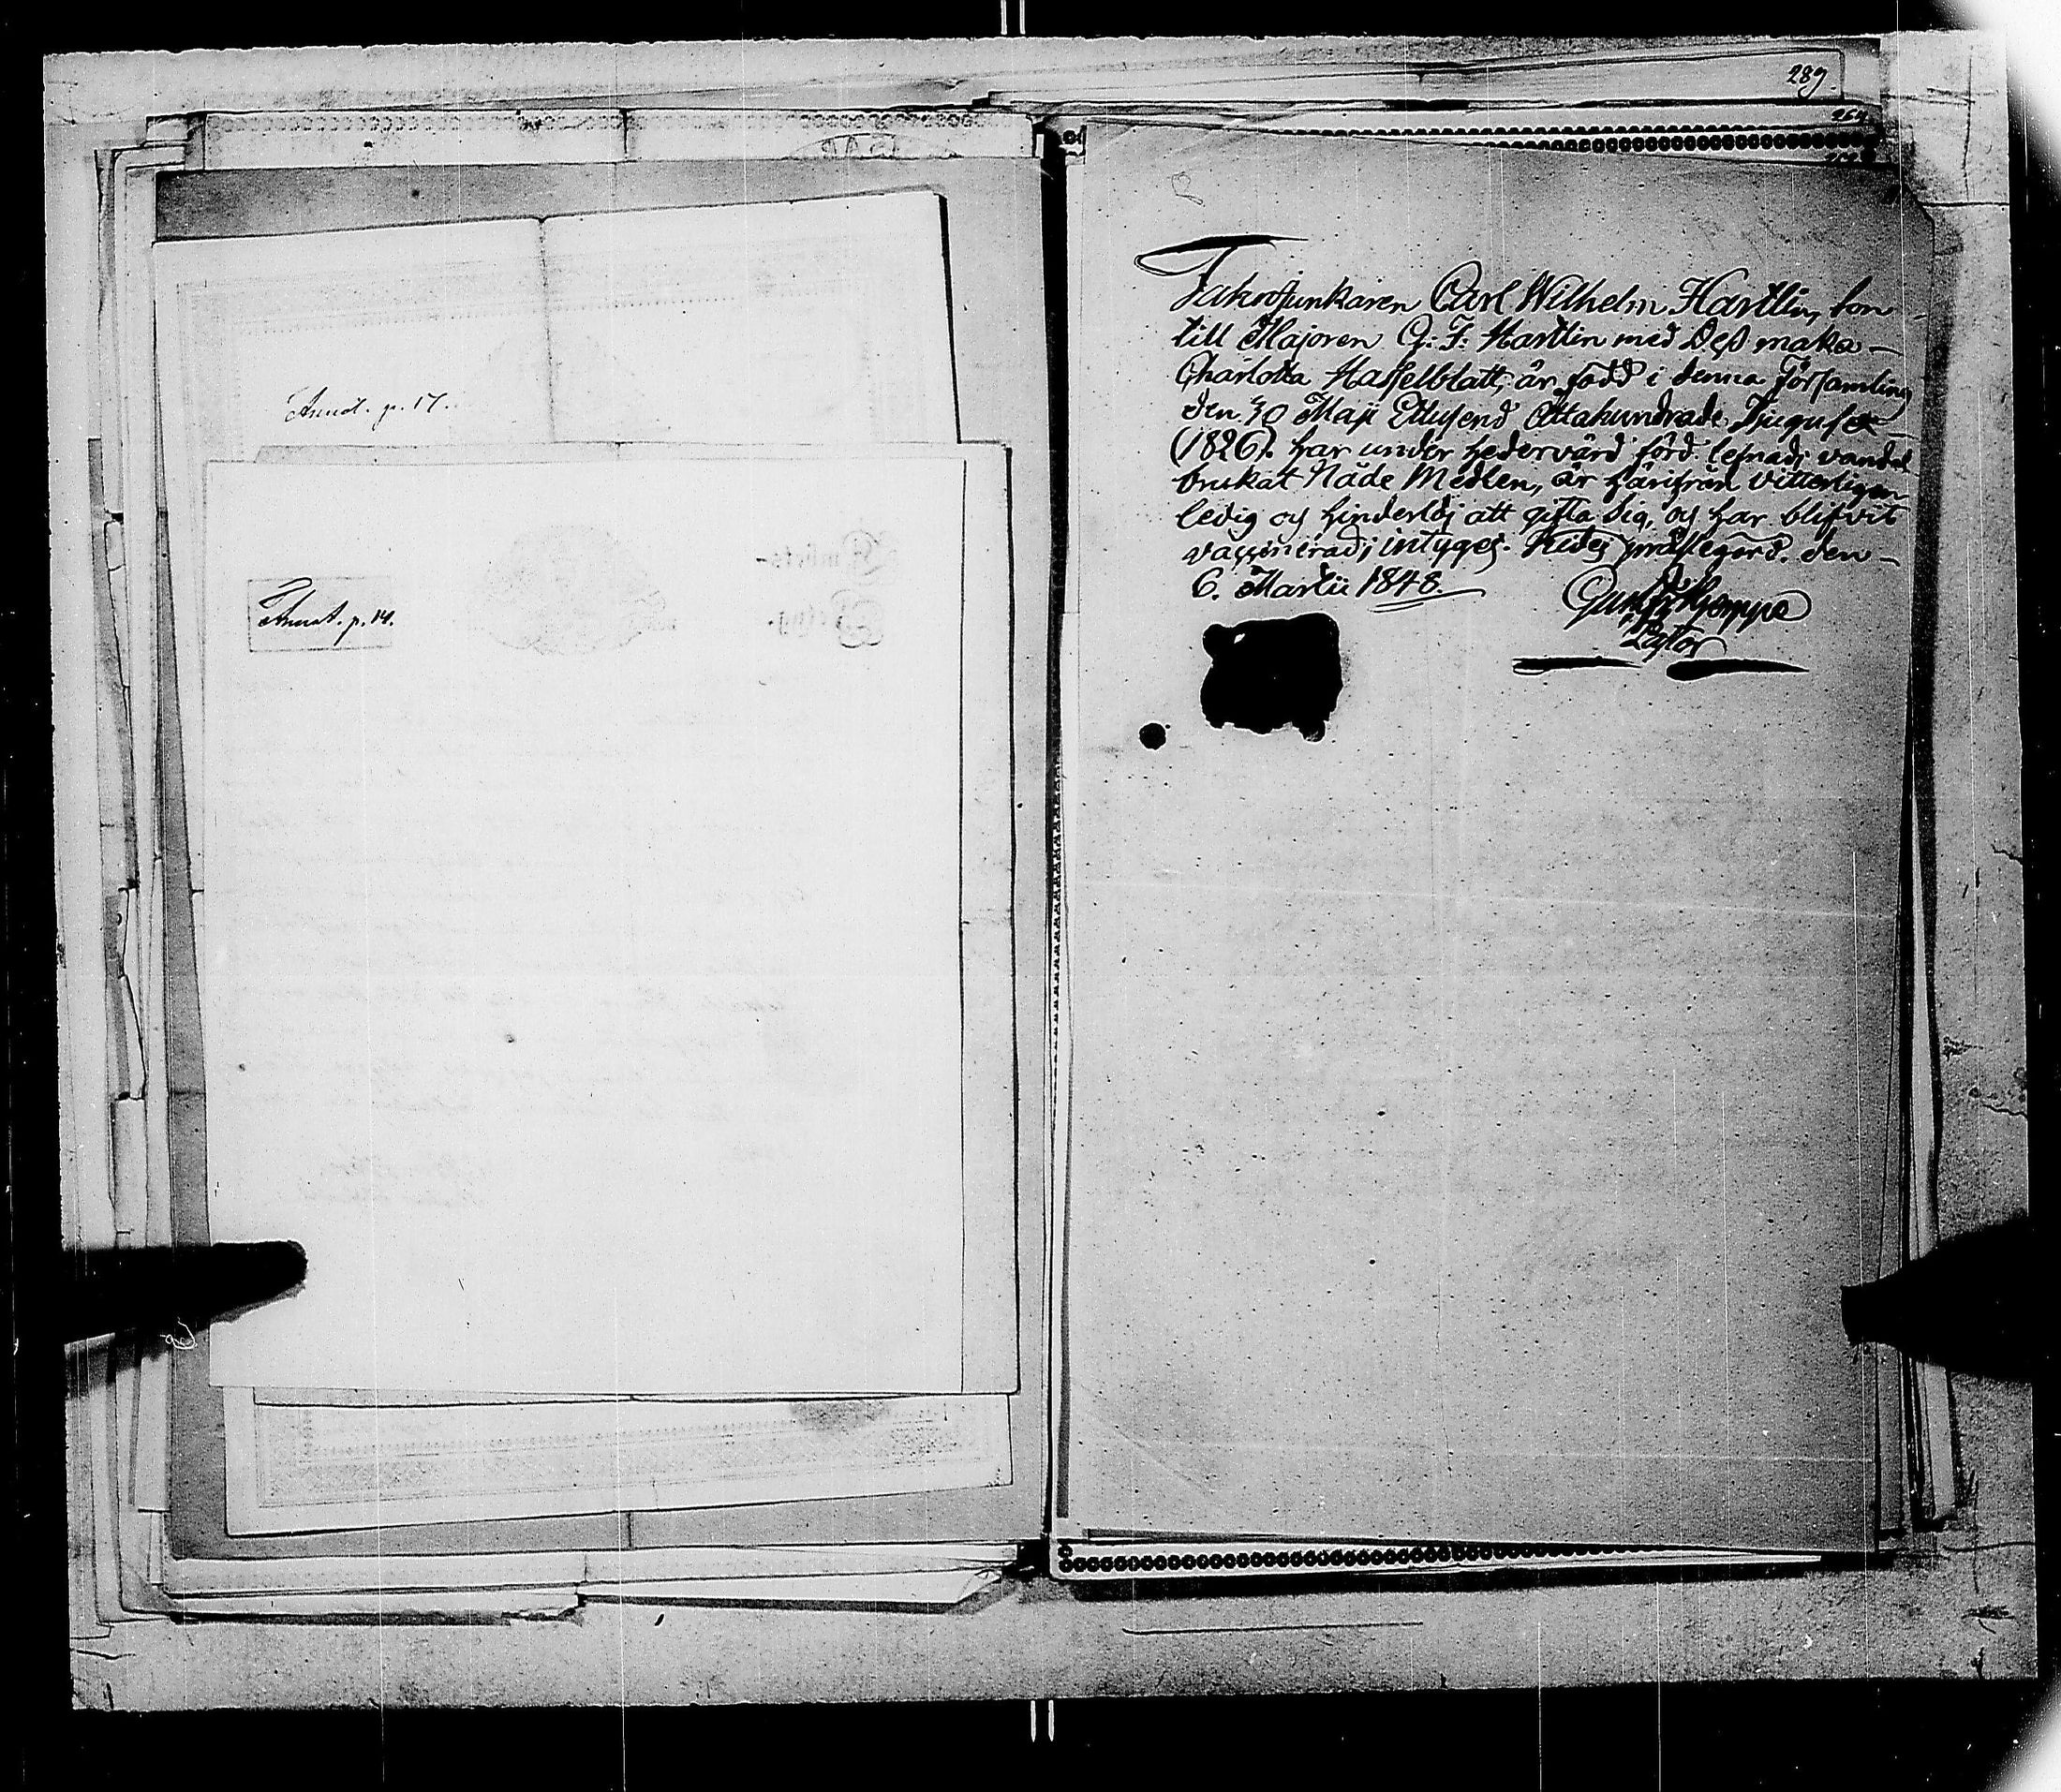 Annot. p. 17.
Annot. p. 14.
289.
Fahnejunkaren Carl Wilhelm Hartlin, son
till Majoren G: F: Hartlin med Deß maka
Charlotta Hasselblatt, är född i denna Församling
den 30 Maji Ettusend Ottahundrade Tjugusex
(1826). har under hedervärd förd lefnads vandel
brukat Nåde Medlen, är härifrån vitterligen
ledig og hinderlös att gifta Sig, og har blifvit
vaccinerad; intyges. prästegård. den
6. Martii 1848.
Kjempe
Pastor